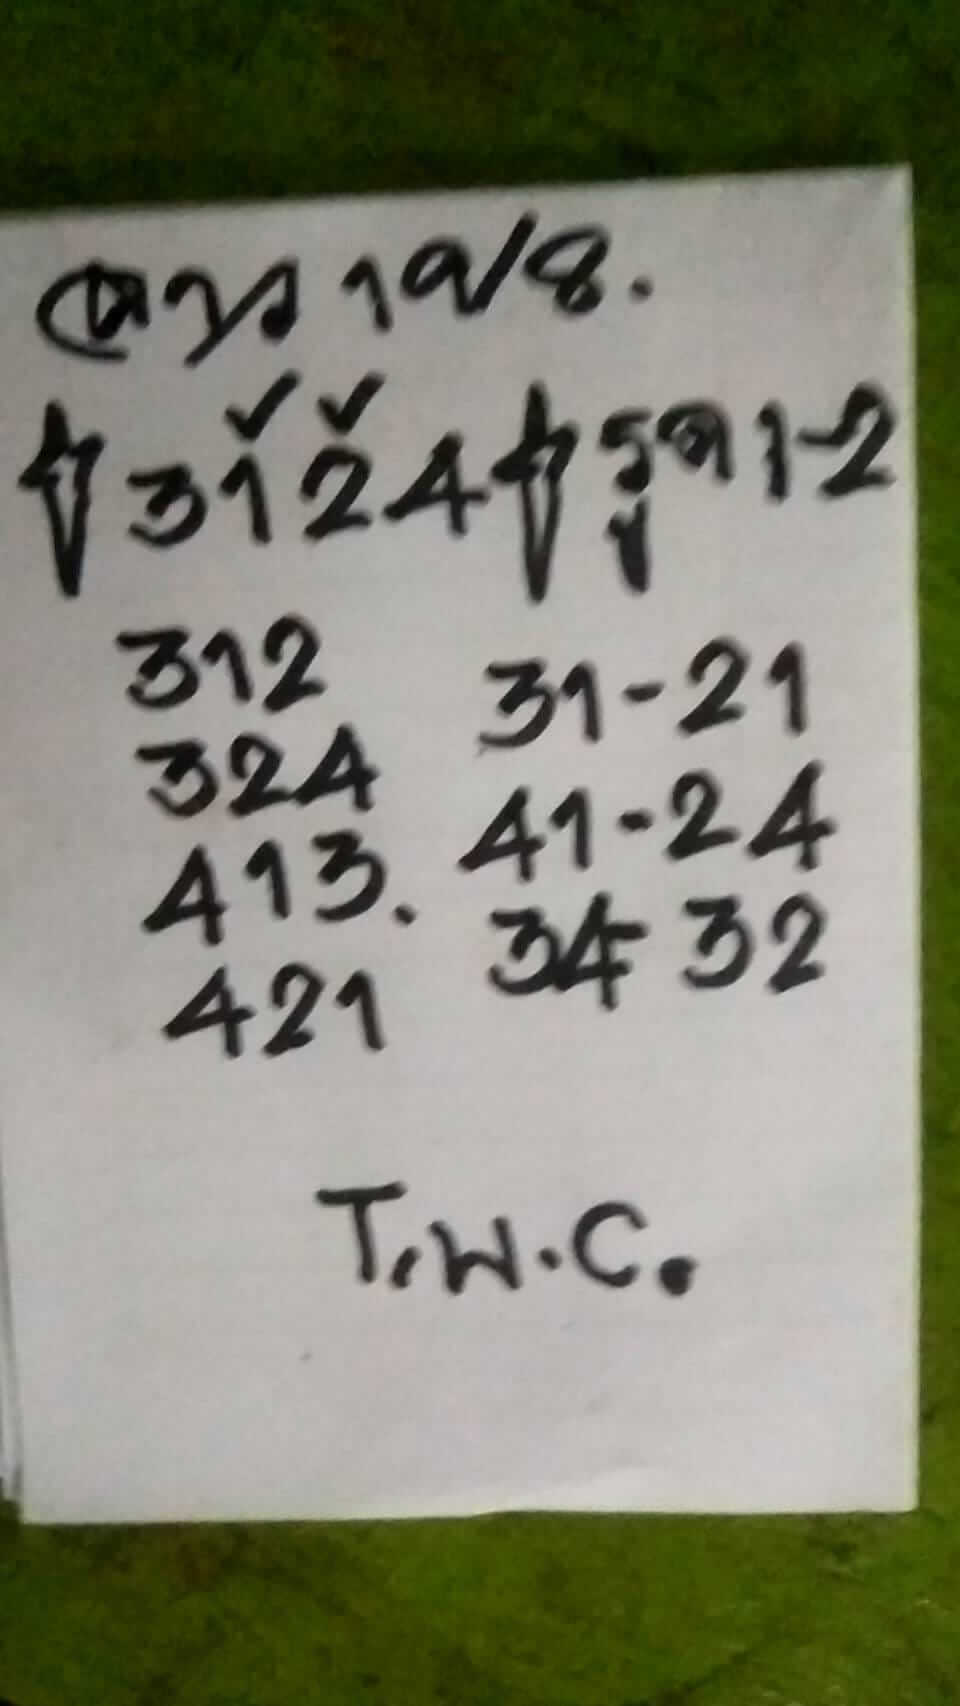 ลาว 19/8.
3124 รูด 1-2
312
324 31-21
413. 41-24
421 34 32
T.W.C.